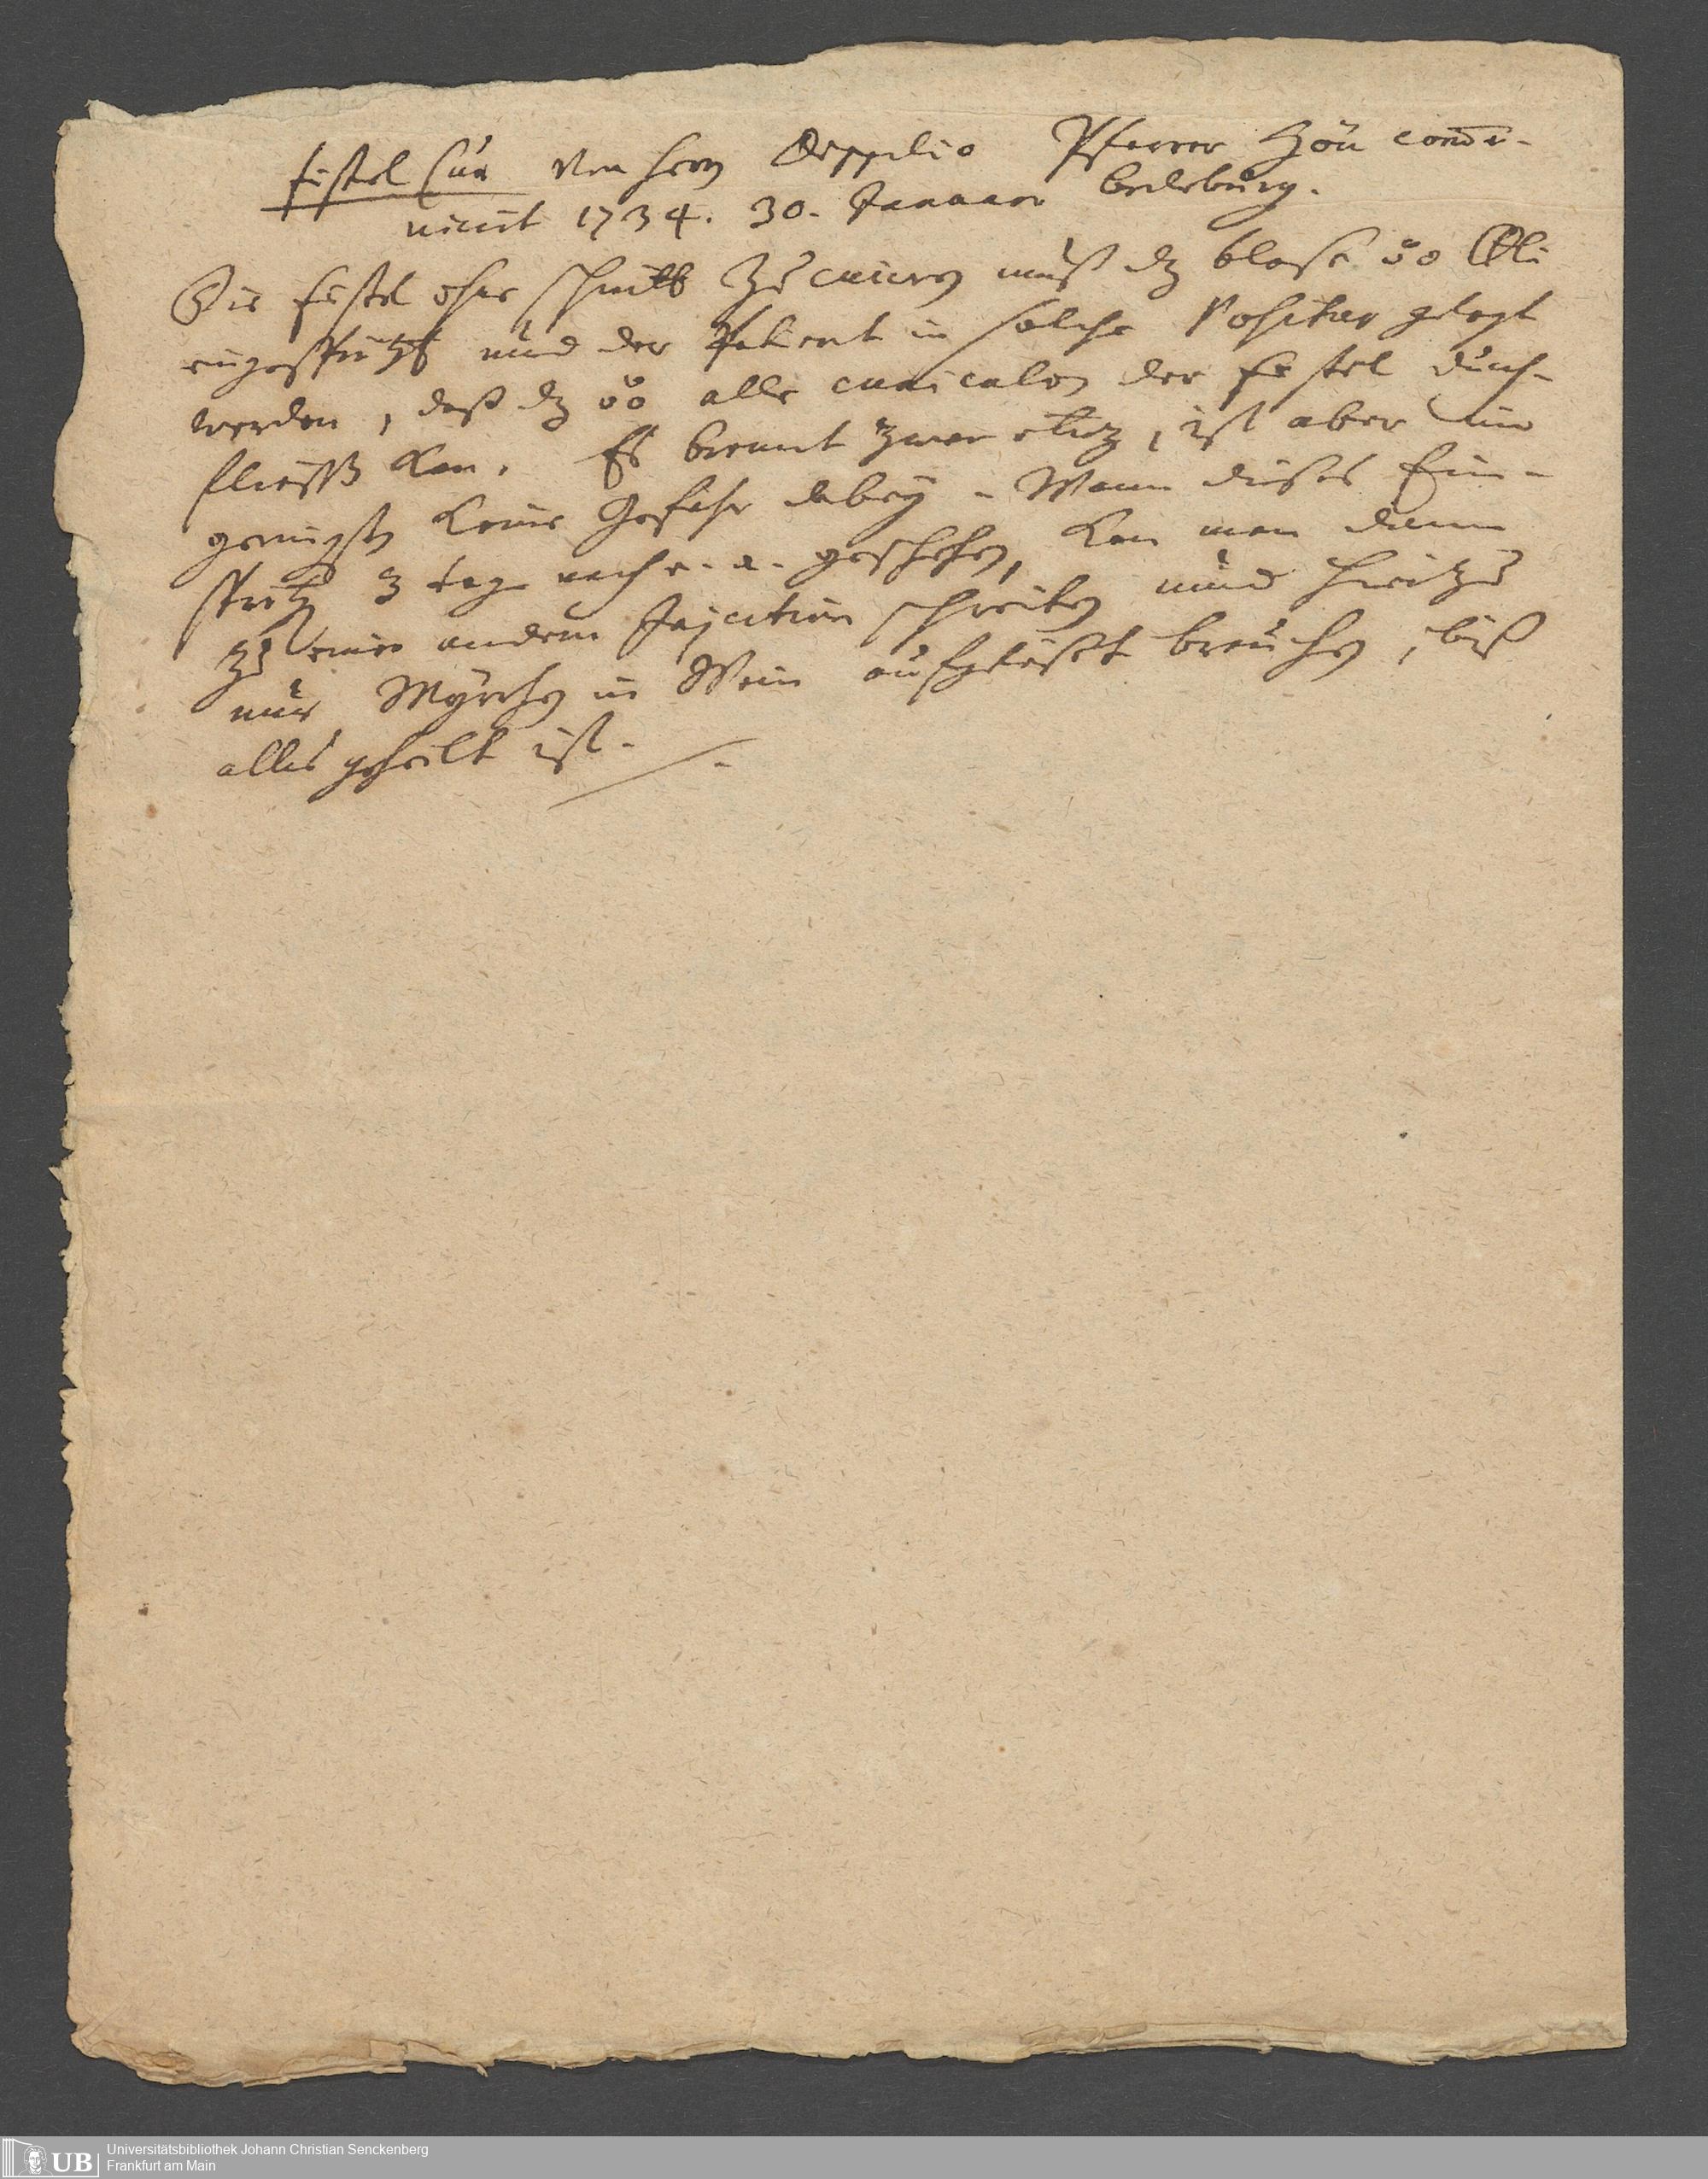 Fistel Cur Von herrn Dippelio Pfarrer Hön com̄u-
nicirt 1734. 30. Januar berleburg.
Die Fistel ohne schnitt zu curiren muß dz bloße oo oli
eingesprützt und der Patient in solche Positur gelegt
werden, daß dz oo alle cuniculos der Fistel durch-
fließen kan. Es brennt zwar etwz, ist aber im
geringsten keine Gefahr dabey. Wann dieses Ein-
spritzen 3 tage nach e. a. geschehen, kan man dann
zu einer andern Injection schreiten und hierzu
nur Myrrhen in Wein aufgelößt brauchen, biß
alles geheilt ist.
Universitätsbibliothek Johann Christian Senckenberg
UB Frankfurt am Main